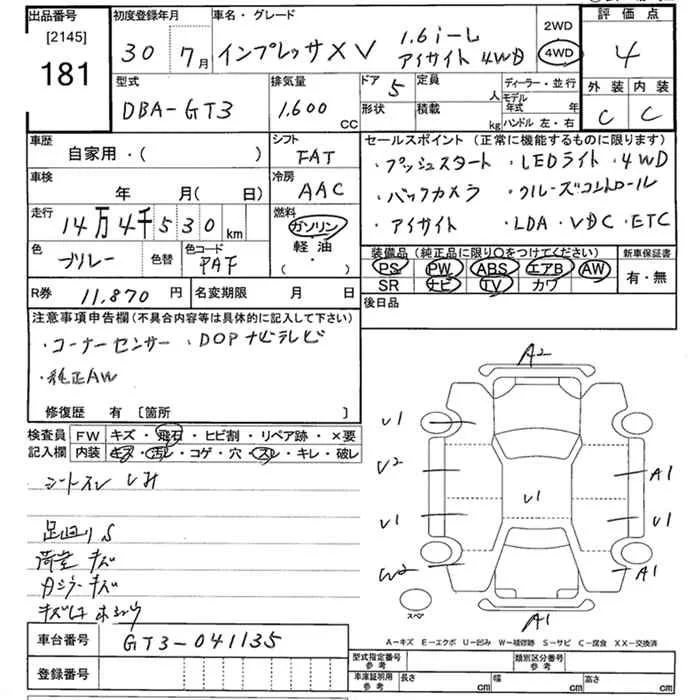 出品番号 初度登録年月 車名・グレード 2WD 評価点
[2145] 181
30年 7月 インプレッサXV 1.6i-L アイサイト 4WD 4WD 4
型式 排気量 ドア 定員 ディーラー・並行 外装 内装
DBA-GT3 1,600 CC 5 人 モデル年式 年 C C
形状 積載 kg ハンドル 左・右
車歴 シフト セールスポイント (正常に機能するものに限ります)
自家用・( ) FAT ・プッシュスタート ・LEDライト ・4WD
車検 冷房 ・バックカメラ ・クルーズコントロール
年 月(日) AAC ・アイサイト ・LDA ・VDC ・ETC
走行 燃料
14万4千530km ガソリン
軽油・( )
装備品 (純正品に限り〇をつけてください) 新車保証書
色 色替 色コード PS PW ABS エアB AW 有・無
ブルー PAF SR ナビ TV カワ
R券 11,870円 名変期限 月 日 後日品
注意事項申告欄(不具合内容等は具体的に記入して下さい)
・コーナーセンサー ・DOPナビテレビ
・純正AW
修復歴 有 [箇所 ]
検査員 FW キズ・飛石・ヒビ割・リペア跡・×要
記入欄 内装 キズ・汚レ・コゲ・穴・スレ・キレ・破レ
シートスレ シミ
足回りS
荷室キズ
キズ
A2
U1
U2 A1
U1 U1 U1
W2 A1
スペア A1
A-キズ E-エクボ U-凹み W-補修跡 S-サビ C-腐食 XX-交換済
車台番号 GT3-041135
登録番号
型式指定番号 参考 類別区分番号 参考
車庫証明用 参考 長さ cm 幅 cm 高さ cm